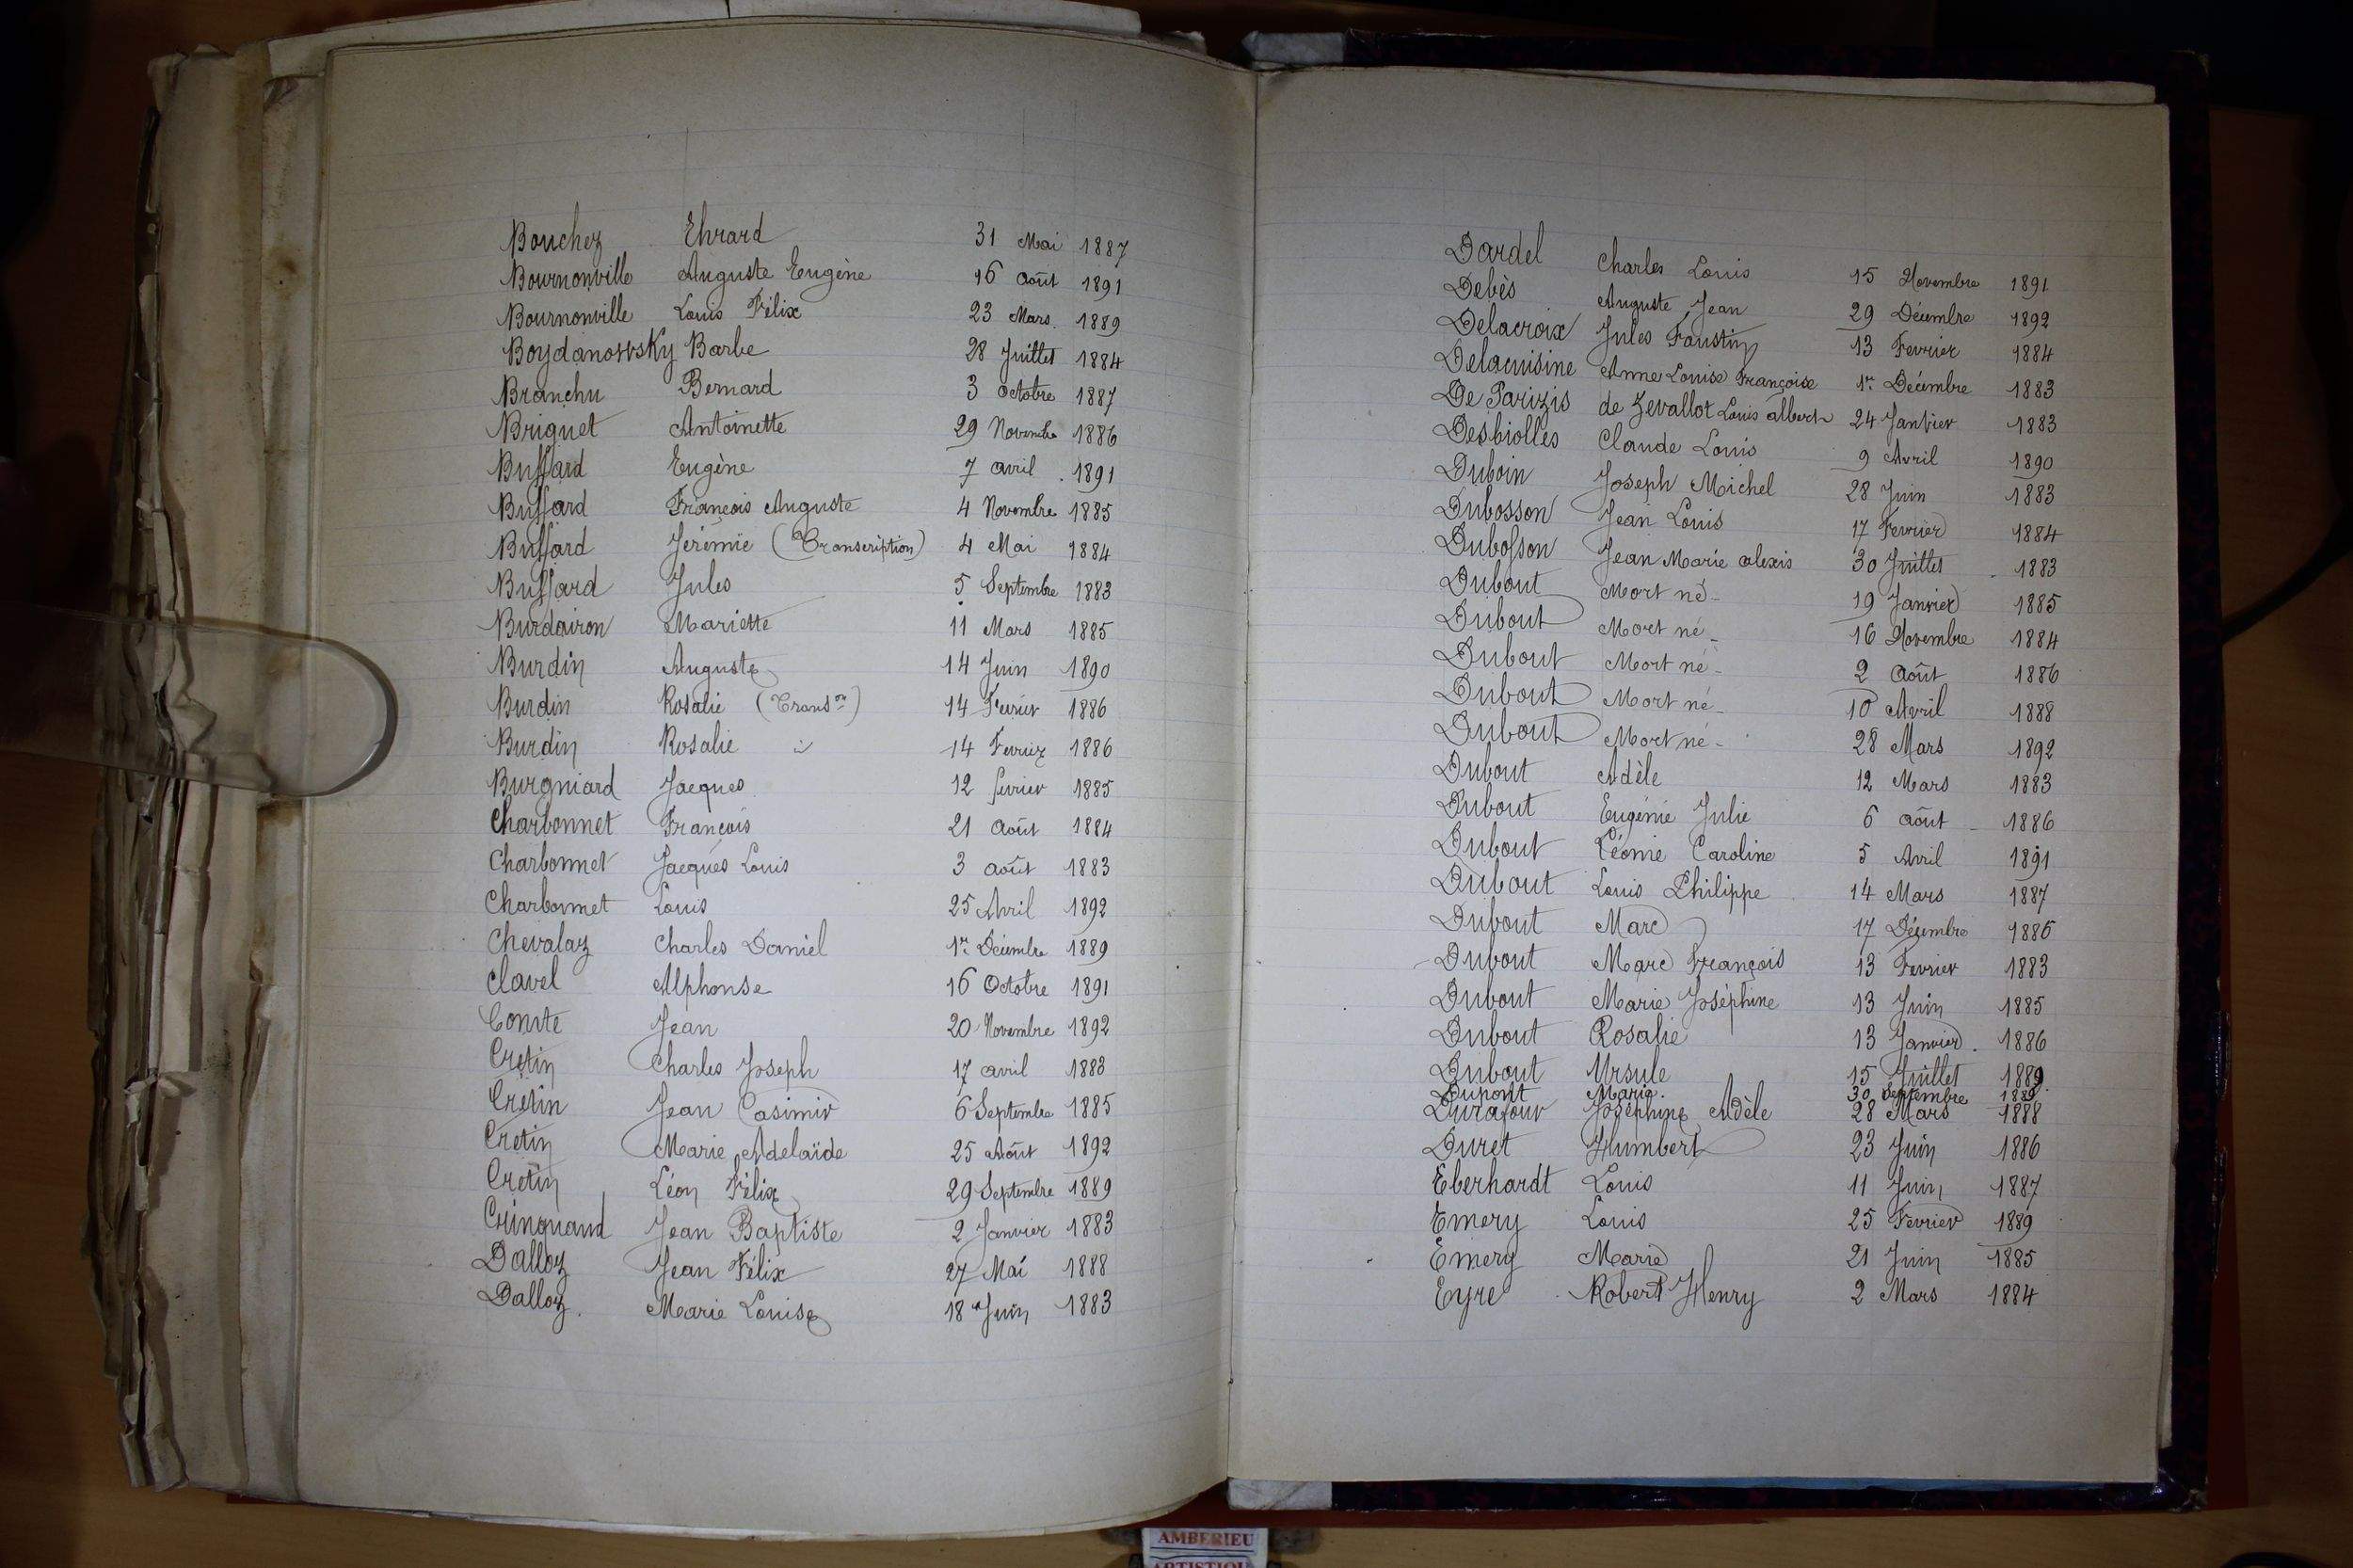 Bouchez Ehrard 31 Mai 1887
Bournonville Auguste Eugène 16 Août 1891
Bournonville Louis Félix 23 Mars 1889
Boydanowsky Barbe 28 Juillet 1884
Branchu Bernard 3 Octobre 1887
Briguet Antoinette 29 Novembre 1886
Buffard Eugène 7 avril 1891
Buffard François Auguste 4 Novembre 1885
Buffard Jérémie (Transcription) 4 Mai 1884
Buffard Jules 5 Septembre 1883
Burdairon Mariette 11 Mars 1885
Burdin Auguste 14 Juin 1890
Burdin Rosalie (Transon) 14 Février 1886
Burdin Rosalie 14 Fevrier 1886
Burgniard Jacques 12 février 1885
Charbonnet François 21 Août 1884
Charbonnet Jacques Louis 3 août 1883
Charbonnet Louis 25 Avril 1892
Chevalaz Charles Daniel 1er Décembre 1889
Clavel Alphonse 16 Octobre 1891
Comte Jean 20 Novembre 1892
Cretin Charles Joseph 17 avril 1883
Crétin Jean Casimir 6 Septembre 1885
Cretin Marie Adelaïde 25 Août 1892
Cretin Léon Félix 29 Septembre 1889
Crinquand Jean Baptiste 2 Janvier 1883
Dalloz Jean Félix 27 Mai 1888
Dalloz Marie Louise 18 Juin 1883
Dardel Charles Louis 15 Novembre 1891
Debès Auguste Jean 29 Décembre 1892
Delacroix Jules Faustin 13 Fevrier 1884
Delacuisine Anne Louise Françoise 1er Décembre 1883
De Parizis de Zevallot Louis albert 24 Janvier 1883
Desbiolles Claude Louis 9 Avril 1890
Duboin Joseph Michel 28 Juin 1883
Dubosson Jean Louis 17 Fevrier 1884
Dubosson Jean Marie alexis 30 Juillet 1883
Dubout Mort né 19 Janvier 1885
Dubout Mort né 16 Novembre 1884
Dubout Mort né 2 Août 1886
Dubout Mort né 10 Avril 1888
Dubout Mort né 28 Mars 1892
Dubout Adèle 12 Mars 1883
Dubout Eugénie Julie 6 août 1886
Dubout Léonie Caroline 5 Avril 1891
Dubout Louis Philippe 14 Mars 1887
Dubout Marc 17 Décembre 1886
Dubout Marc François 13 Fevrier 1883
Dubout Marie Joséphine 13 Juin 1885
Dubout Rosalie 13 Janvier 1886
Dubout Ursule 15 Juillet 1889
Dupont Marie 30 Septembre 1889
Durafour Joséphine Adèle 28 Mars 1888
Duret Humbert 23 Juin 1886
Eberhardt Louis 11 Juin 1887
Emery Louis 25 Fevrier 1889
Emery Marie 21 Juin 1885
Eyre Robert Henry 2 Mars 1884
AMBERIEU